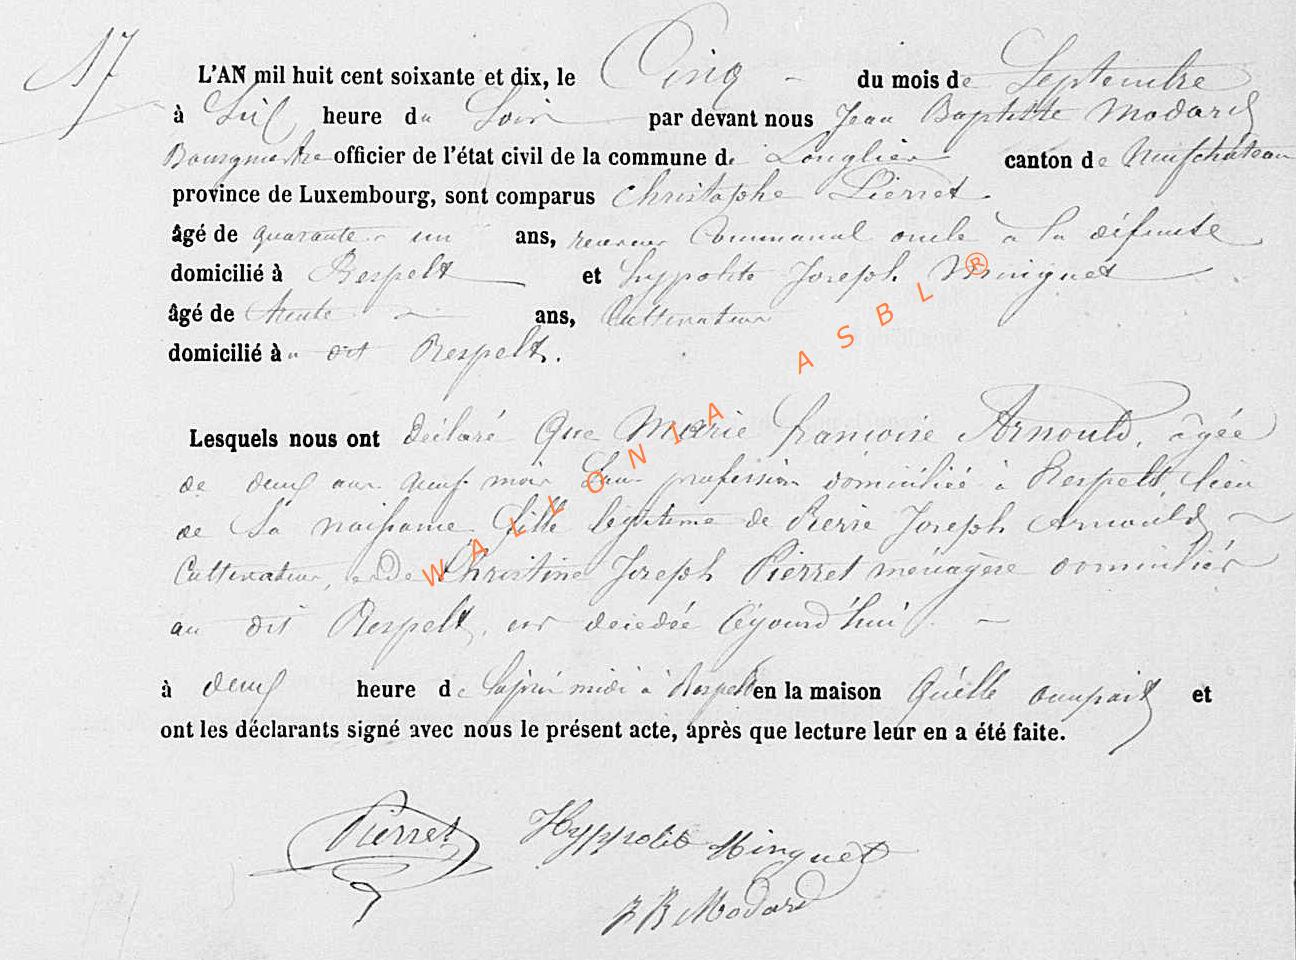 17
L'AN mil huit cent soixante et dix, le Cinq du mois de Septembre
à Six heure du Soir par devant nous Jean Baptiste Modard
Bourgmestre officier de l'état civil de la commune de Longlier canton de Neufchâteau
province de Luxembourg, sont comparus Christophe Pierret
âgé de quarante un ans, receveur Communal oncle à la défunte
domicilié à Respelt et hyppolite Joseph Minguet
âgé de trente ans, Cultivateur
domicilié à u dit Respelt.
Lesquels nous ont déclaré Que Marie françoise Arnould, âgée
de deux ans neuf mois Sans profession domiciliée à Respelt, lieu
de Sa naissance fille légitime de Pierre Joseph Arnould
Cultivateur, et de Christine Joseph Pierret ménagère domiciliés
au dit Respelt, est décédée Cejourd'hui
à deux heure de l'après midi à Respelt en la maison Qu'elle occupait et
ont les déclarants signé avec nous le présent acte, après que lecture leur en a été faite.
Pierret Hyppolite Minguet
J B Modard
WALLONIA ASBL ®